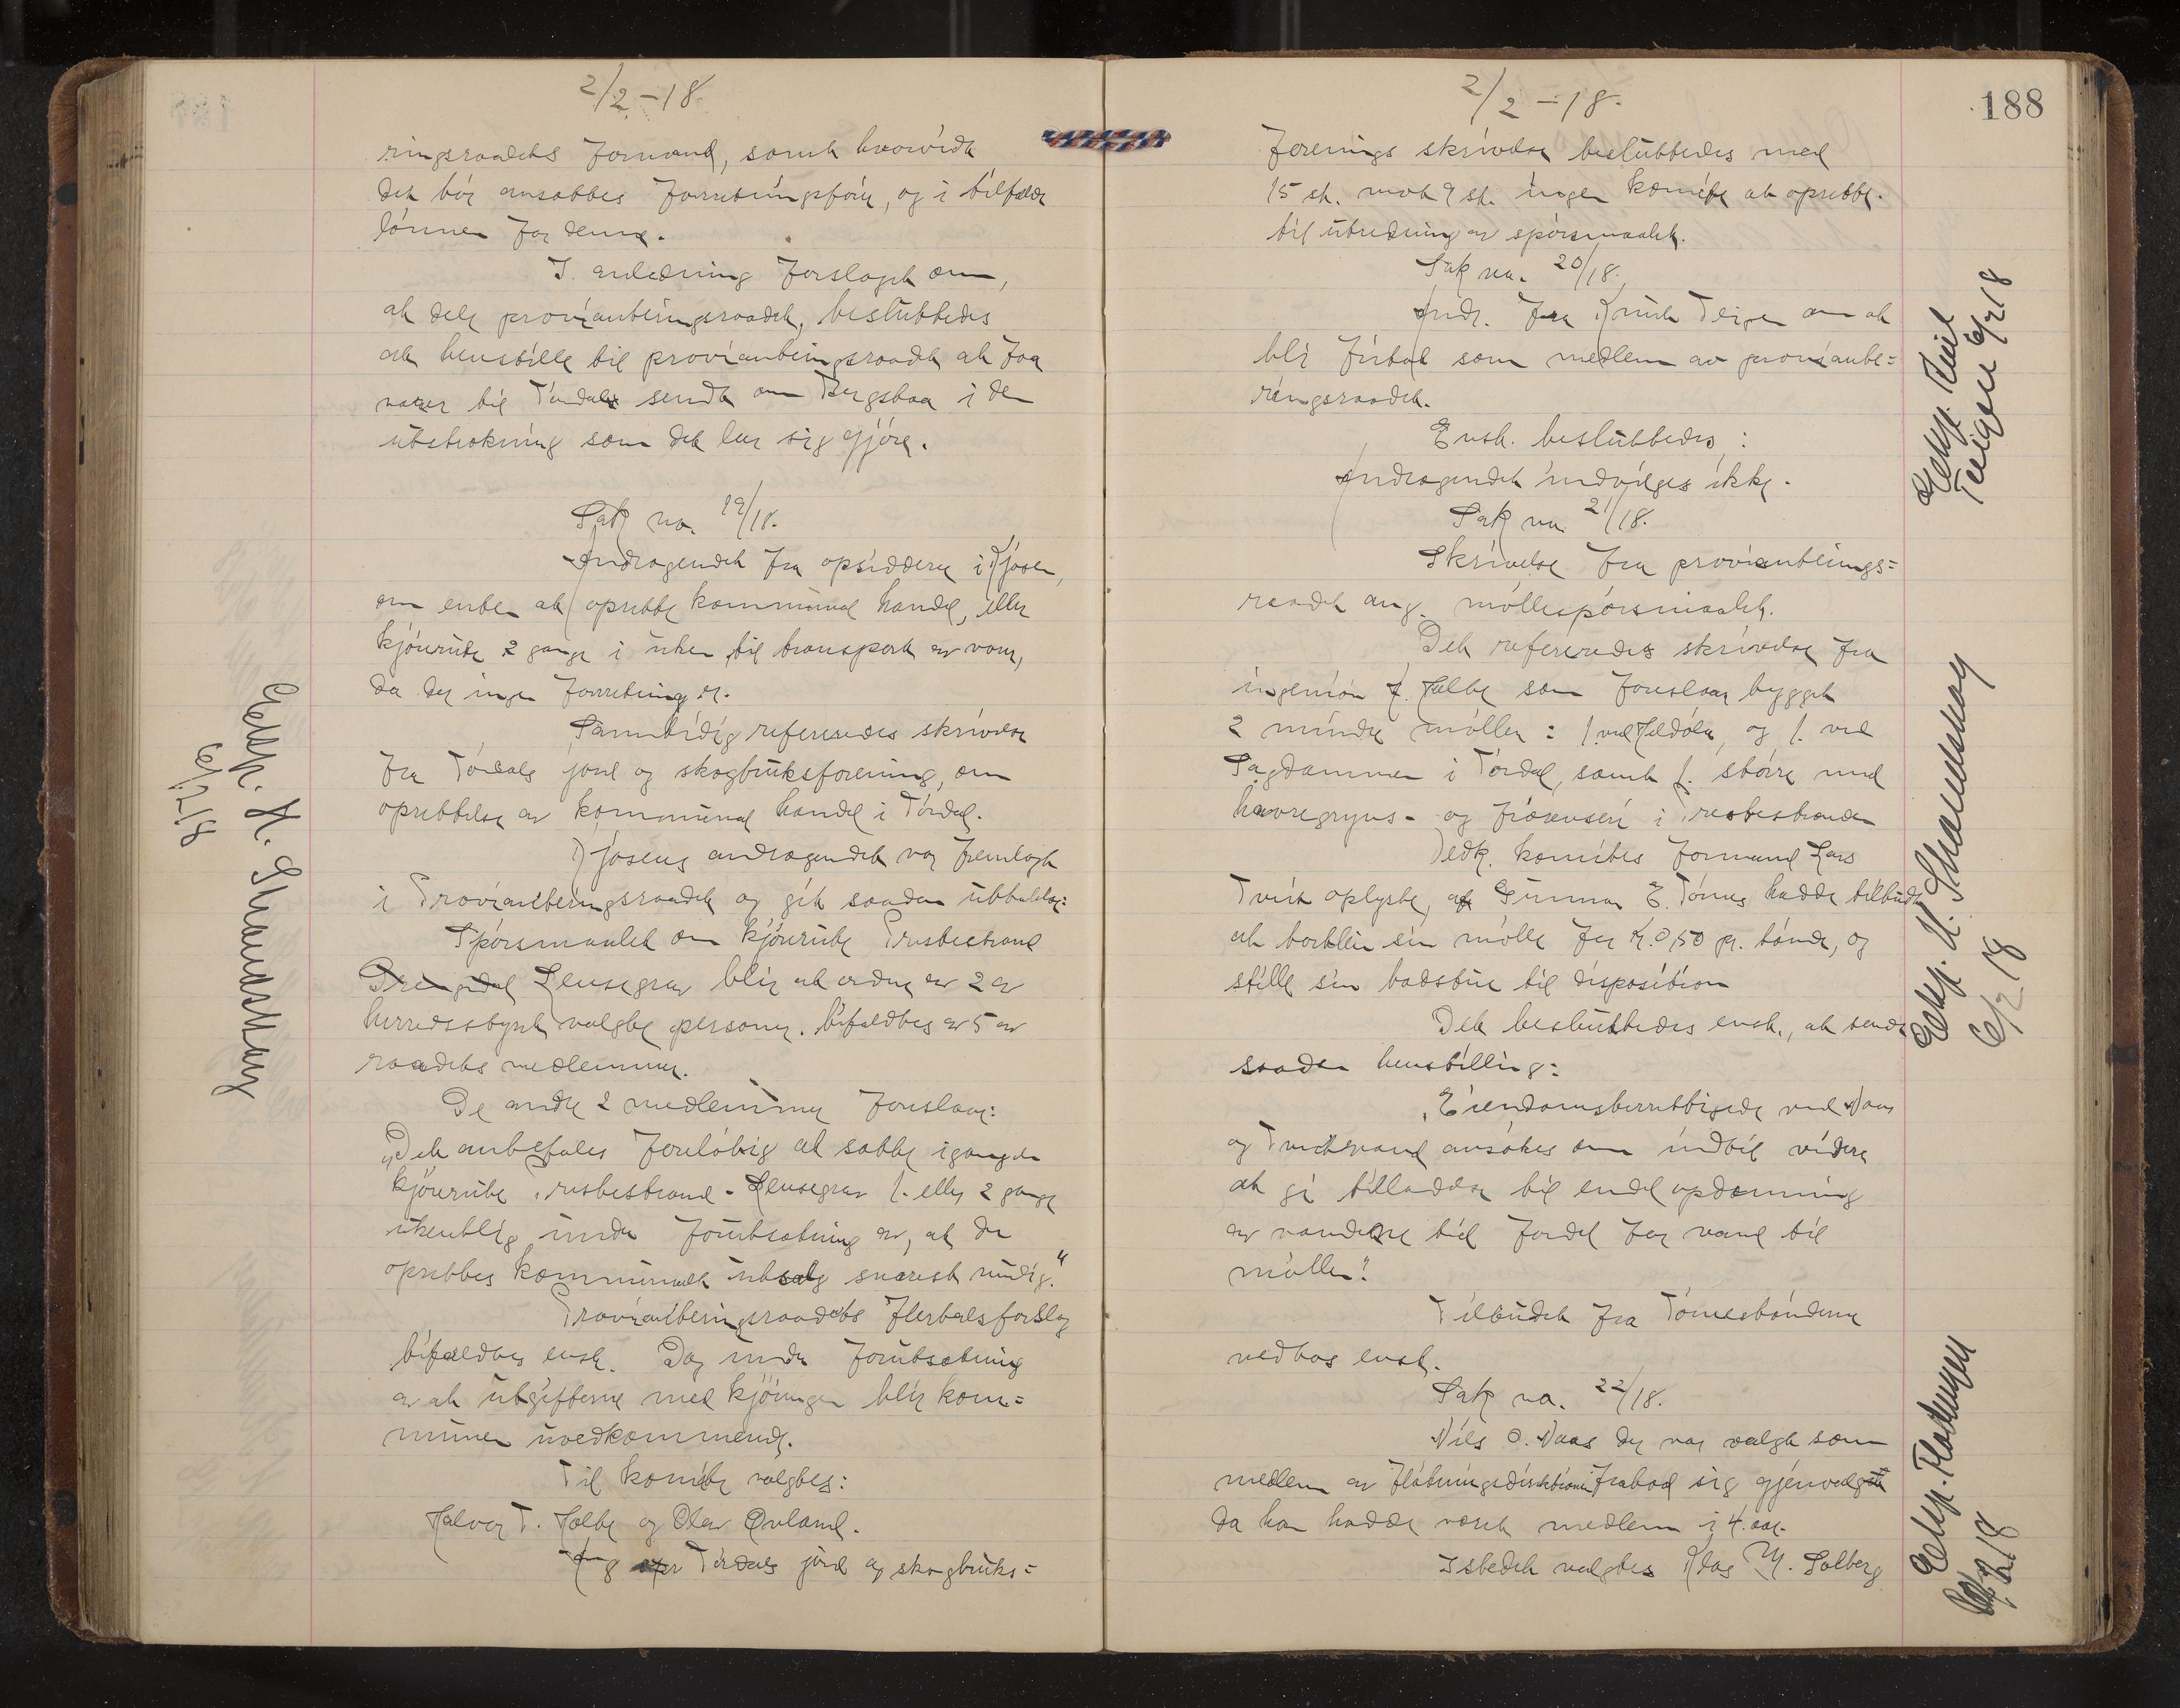 2/2-18.
ringsraadets formand, samt hvorvidt
det bör ansættes forretningsförer, og i tilfælde
lönnen for denne.
I anledning forslaget om,
at dele provianteringsraadet, besluttedes
at henstille til provianteringsraadet at faa
varer til Tördal sendt om Bergstaa i den
utstrekning som det lar sig gjöre.
Sak no. 19/18.
Andragendet fra opsidderne i Kjosen,
om enten at oprette kommunal handel, eller
kjörerute 2 gange i uken til transport av varer,
da der ingen forretning er.
Samtidig refereredes skrivelse
fra Tördals jord og skogbruksforening, om
oprettelse av kommunal handel i Tördal.
Kjosens andragendet var fremlagt
i Provianteringsraadet og gik saadan uttalelse:
Spörsmaalet om kjörerute Trostestrand
Drangedal Lensegrav blir at ordne av 2 av
herredsstyret valgte personer. bifaldtes av 5 av
raadets medlemmer.
De andre 2 medlemmer foreslaar:
„Det anbefales forelöbig at sætte igang en
kjörerute Trostestrand - Lensegrav 1. eller 2 gange
ukentlig under forutsætning av, at der
oprettes kommunalt utsalg snarest mulig."
Provianteringsraadets flertalsforslag
bifaldtes enst. Dog under forutsætning
av at utgifterne med kjöringen blir kom=
munen uvedkommende.
Til komite valgtes:
Halvor T. Holte og Olav Övland.
Ang Tördals jord og skogbruks=
Eksp. H. Strandskoug
6/2 18
2/2-18.
188
forenings skrivelse besluttedes med
15 st. mot 9 st. ingen komite at oprette
til utredning av spörsmaalet.
Sak no. 20/18.
Andr. fra Knut Teigen om at
bli fritat som medlem av proviante=
ringsraadet.
Enst. besluttedes:
Andragendet indvilges ikke.
Sak no. 21/18.
Skrivelse fra provianterings=
raadet ang. möllespörsmaalet.
Det refereredes skrivelse fra
ingeniör Holte som foreslaar bygget
2 mindre möller: 1. ved og 1. ved
Sagdammen i Tördal, samt 1. större med
havregryns- og i Trostestranden
Vedk. komites formand Lars
Tveit oplyste, at Gunnar E. Törnes hadde tilbudt
at bortleie sin mölle for kr. 0,50 pr. tönde, og
stille sin badstue til disposition
Det besluttedes enst., at sende
saadan henstilling:
„Eiendomsberettigede ved Naas
og Tveitvand ansökes om indtil videre
at gi tilladelse til endel opdæmning
av vandene til fordel for vand til
möller."
Tilbudet fra Törnesbönderne
vedtas enst.
Sak no. 22/18.
Nils O. Naas der var valgt som
medlem av Flötningsdirektionen frabad sig gjenvalg
da han hadde været medlem i 4. aar.
Istedet valgtes Klas M. Solberg
Eksp. Knut
Teigen 6/2 18
Eksp. H. Strandskoug
6/2 18
Eksp. Flötningen
6/2 18